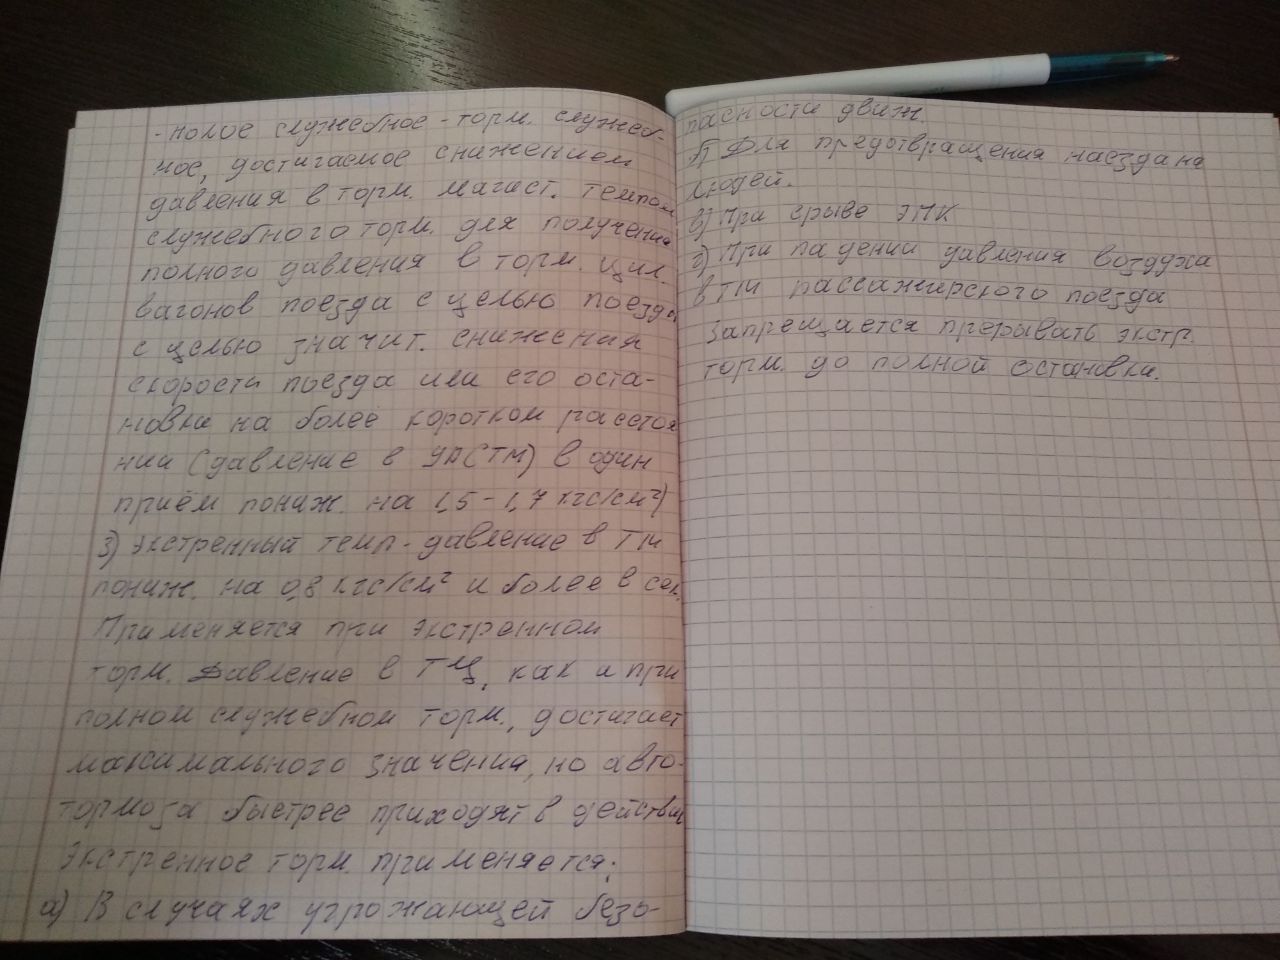 - полое служебное - торм. служеб-
ное, достигаемое снижением
давления в торм. магист. темпом
служебного торм. для получения
полного давления в торм. цил.
вагонов поезда с целью поезда,
с целью значит. снижения
скорости поезда или его оста-
новки на более коротком расстоя
нии (давление в УРСТМ) в один
приём пониж. на 1,5 - 1,7 кгс/см²)
3) Экстренный темп - давление в ТМ
пониж. на 0,8 кгс/см² и более в сек.
Применяется при экстренном
торм. Давление в ТЦ, как и при
полном служебном торм., достигает
максимального значения, но авто-
тормоза быстрее приходят в действие
Экстренное торм. применяется:
а) В случаях угрожающей безо-
пасности движ.
б) Для предотвращения наезда на
людей.
в) При срыве ЭПК
г) При падении давления воздуха
в ТМ пассажирского поезда
Запрещается прерывать экстр.
торм. до полной остановки.